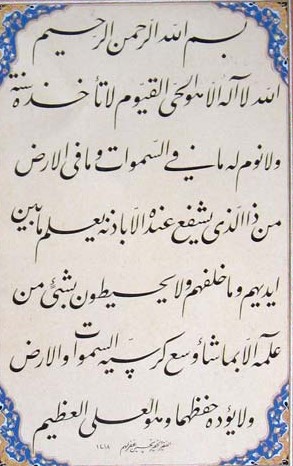 بسم الله الرحمن الرحيم
الله لا اله الا هو الحي القيوم لا تأخذه سنة
ولا نوم له ما في السموات وما في الارض
من ذا الذي يشفع عنده الا باذنه يعلم ما بين
ايديهم وما خلفهم ولا يحيطون بشئ من
علمه الا بما شاء وسع كرسيه السموات والارض
ولا يؤده حفظهما وهو العلي العظيم
١٤١٨